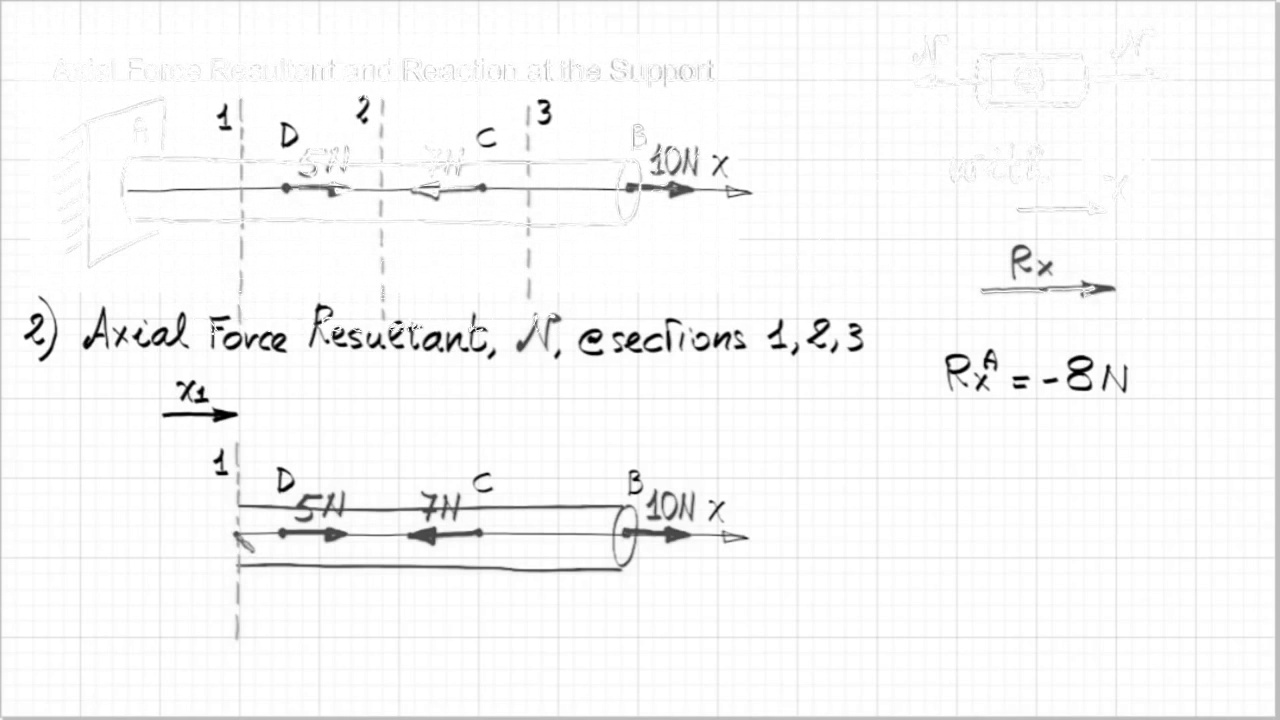 Axial Force Resultant and Reaction at the Support
N N
A 1 D 5N 2 7N C 3 B 10N x
with x
Rx
2) Axial Force Resultant, N, @sections 1,2,3
RxA = -8N
x1
1 D 5N 7N C B 10N x